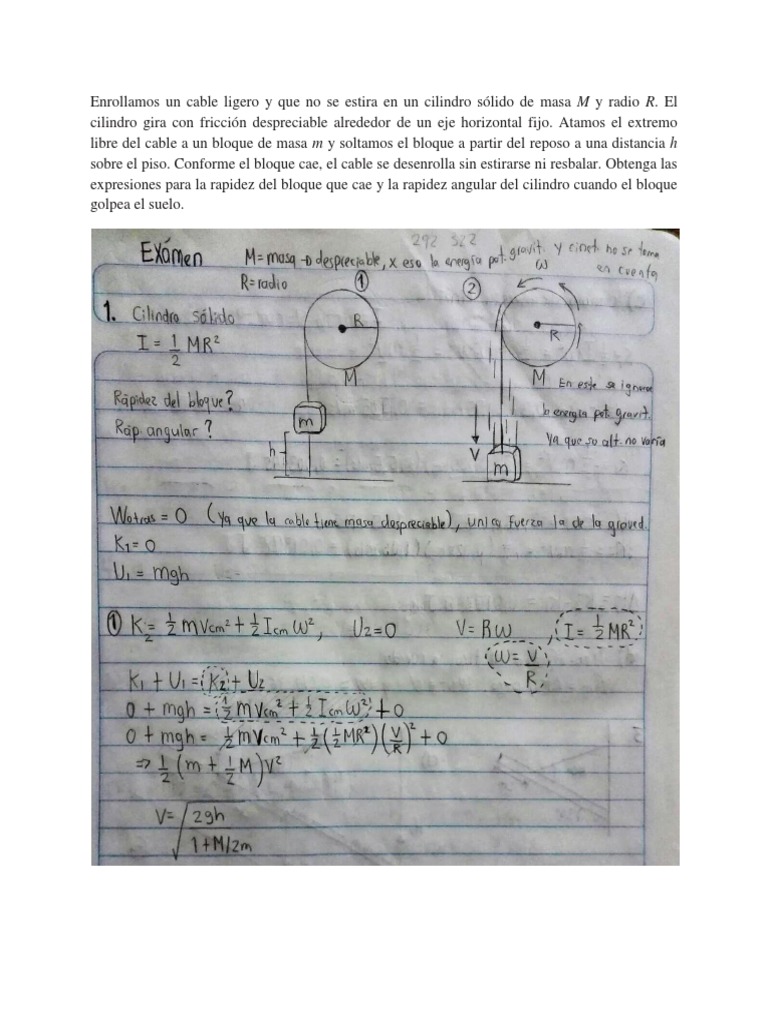 Enrollamos un cable ligero y que no se estira en un cilindro sólido de masa M y radio R. El
cilindro gira con fricción despreciable alrededor de un eje horizontal fijo. Atamos el extremo
libre del cable a un bloque de masa m y soltamos el bloque a partir del reposo a una distancia h
sobre el piso. Conforme el bloque cae, el cable se desenrolla sin estirarse ni resbalar. Obtenga las
expresiones para la rapidez del bloque que cae y la rapidez angular del cilindro cuando el bloque
golpea el suelo.
292 322
Exámen M=masa → despreciable, x eso la energía pot. gravit. y cinet. no se toma
en cuenta
R=radio ① ② ω
1. Cilindro sólido
R R
I = 1/2 MR²
M M
En este se ignora
Rapidez del bloque?
la energía pot. gravit.
m
Ráp. angular?
Ya que su alt. no varía
h V
m
Wotras = 0 (Ya que la cable tiene masa despreciable), unica fuerza la de la graved.
K1=0
U1 = mgh
① K2= 1/2 mVcm² + 1/2 Icm ω², U2=0 V=Rω , I= 1/2 MR²
ω= V/R
K1 + U1 = K2 + U2
0 + mgh = 1/2 mVcm² + 1/2 Icm ω² + 0
0 + mgh = 1/2 mVcm² + 1/2 (1/2 MR²)(V/R)² + 0
⇒ 1/2 (m + 1/2 M)V²
V= √(2gh / 1+M/2m)